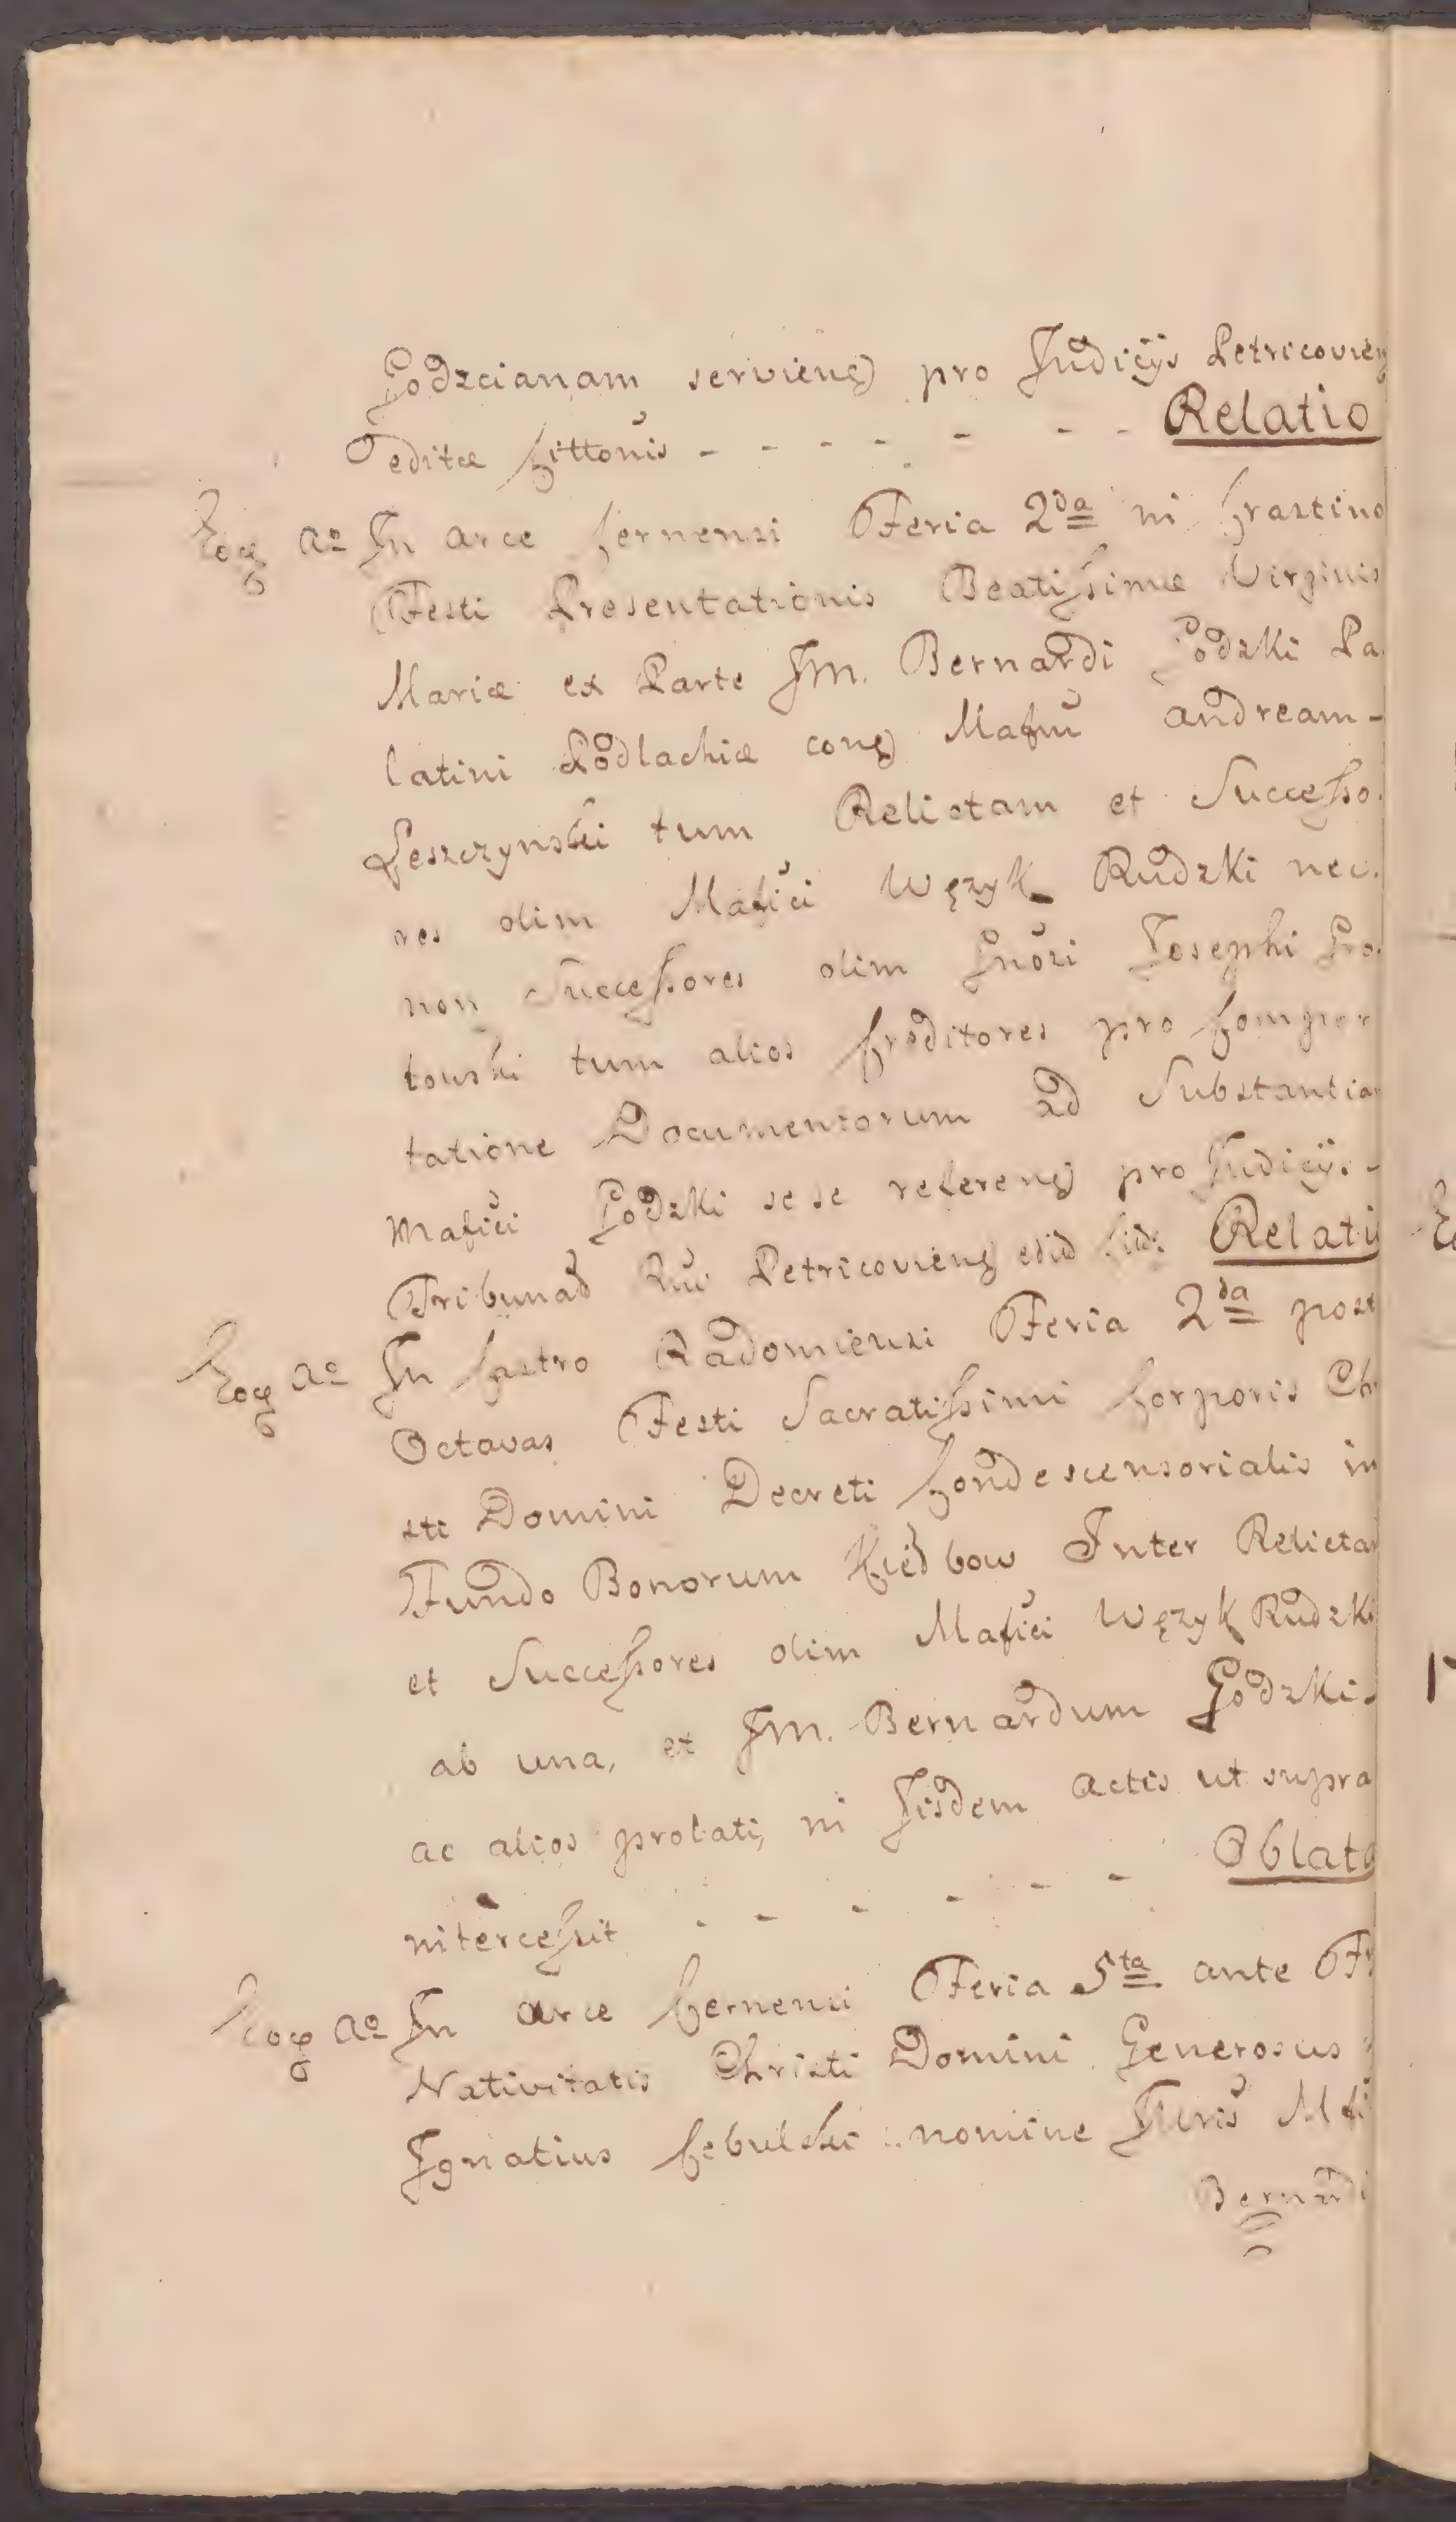 Godzcianam servieng) pro Judicÿs Petricovieng
editæ Cittonis - - - - - - - Relatio
Eoq aº In Arce Cernensi Feria 2da in Crastino
Festi Presentationis Beatissimæ Virginis
Mariæ ex Parte Jm. Bernardi Godzki Pa-
latini Podlachiæ cong) Mafcum Andream -
Leszczynski tum Relictam et Successo-
res olim Mafici Wężyk Rudzki nec-
non Successores olim Gnosi Josephi Gro-
towski tum alios Creditores pro Compor
tatione Documentorum ad Substantiam
Mafici Godzki sese refereng) pro Judicÿs -
Tribunad Petricovieng Relatio
Eoq aº In Castro Radomiensi Feria 2da post
Octavas Festi Sacratissimi Corporis Chri
sti Domini Decreti Condescensorialis in
Fundo Bonorum Kiedbow Inter Relictam
et Successores olim Mafici Wężyk Rudzki
ab una, et Jm. Bernardum Godzki -
ac alios prolati, in Jisdem Actis ut supra
intercessit - - - - - - Oblata
Eoq aº In Arce Cernensi Feria 5ta ante
Nativitatis Christi Domini Generosus
Ignatius Cebulski nomine
Bernardi